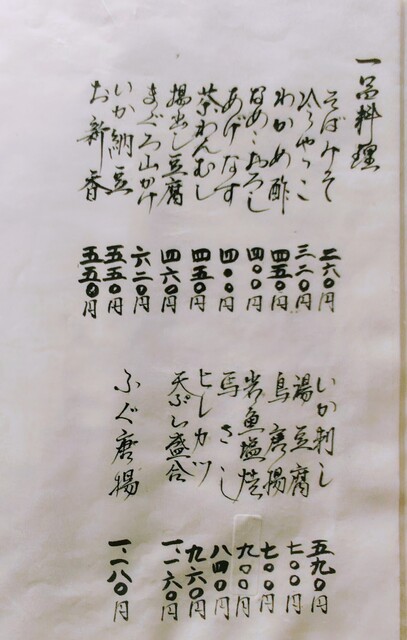 一品料理
そばみそ 二六〇円
冷やっこ 三二〇円
わかめ酢 四五〇円
なめこおろし 四〇〇円
あげなす 四〇〇円
茶わんむし 四五〇円
揚出し豆腐 四六〇円
まぐろ山かけ 六二〇円
いか納豆 五五〇円
お新香 五五〇円
いか刺し 五九〇円
湯豆腐 七〇〇円
鳥唐揚 七〇〇円
岩魚塩焼 九〇〇円
馬さし 八四〇円
ヒレカツ 九六〇円
天ぷら盛合 一、一六〇円
ふぐ唐揚 一、一八〇円